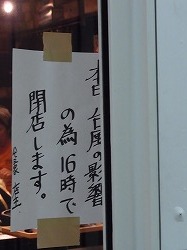 本日台風の影響
の為16時で
閉店します。
店主